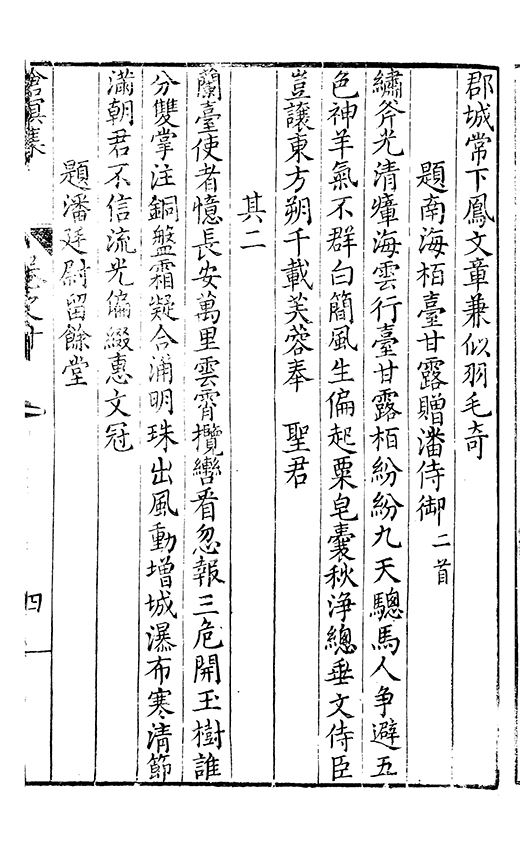 郡城常下鳳文章兼似羽毛奇
題南海栢臺甘露贈潘侍御二首
繡斧光清瘴海雲行臺甘露栢紛紛九天驄馬人争避五
色神羊氣不群白簡風生偏起粟皂囊秋淨總垂文侍臣
豈讓東方朔千載芙蓉奉 聖君
其二
蘭臺使者憶長安萬里雲霄攬轡看忽報三危開玉樹誰
分雙掌注銅盤霜凝合浦明珠出風動增城瀑布寒清節
滿朝君不信流光偏綴惠文冠
題潘廷尉留餘堂
滄溟集
四